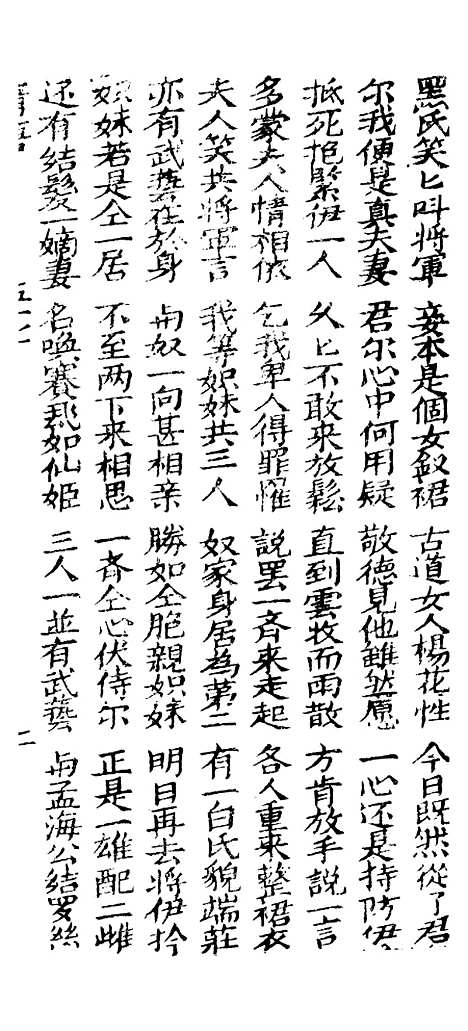 黑氏笑匕叫將軍 妾本是個女釵裙 古道女人楊花性 今日既然從了君
尔我便是真夫妻 君尔心中何用疑 敬德見他雖然愿 一心还是持防伊
抵死抱緊伊一人 久匕不敢來放鬆 直到雲收而雨散 方肯放手說一言
多蒙夫人情相依 乞我卑人得罪 說罢一斉來走起 各人重來整裙衣
夫人笑共將軍言 我等姐妹共三人 奴家身居為第二 有一白氏貌端莊
亦有武藝在於身 与奴一向甚相亲 勝如仝胞親姐妹 明日再去將伊扲
姐妹若是仝一居 不至两下來相思 一斉仝心伏侍尔 正是一雄配二雌
还有結髮一嫡妻 名喚賽飛如仙姬 三人一並有武藝 与孟海公結罗絲
二